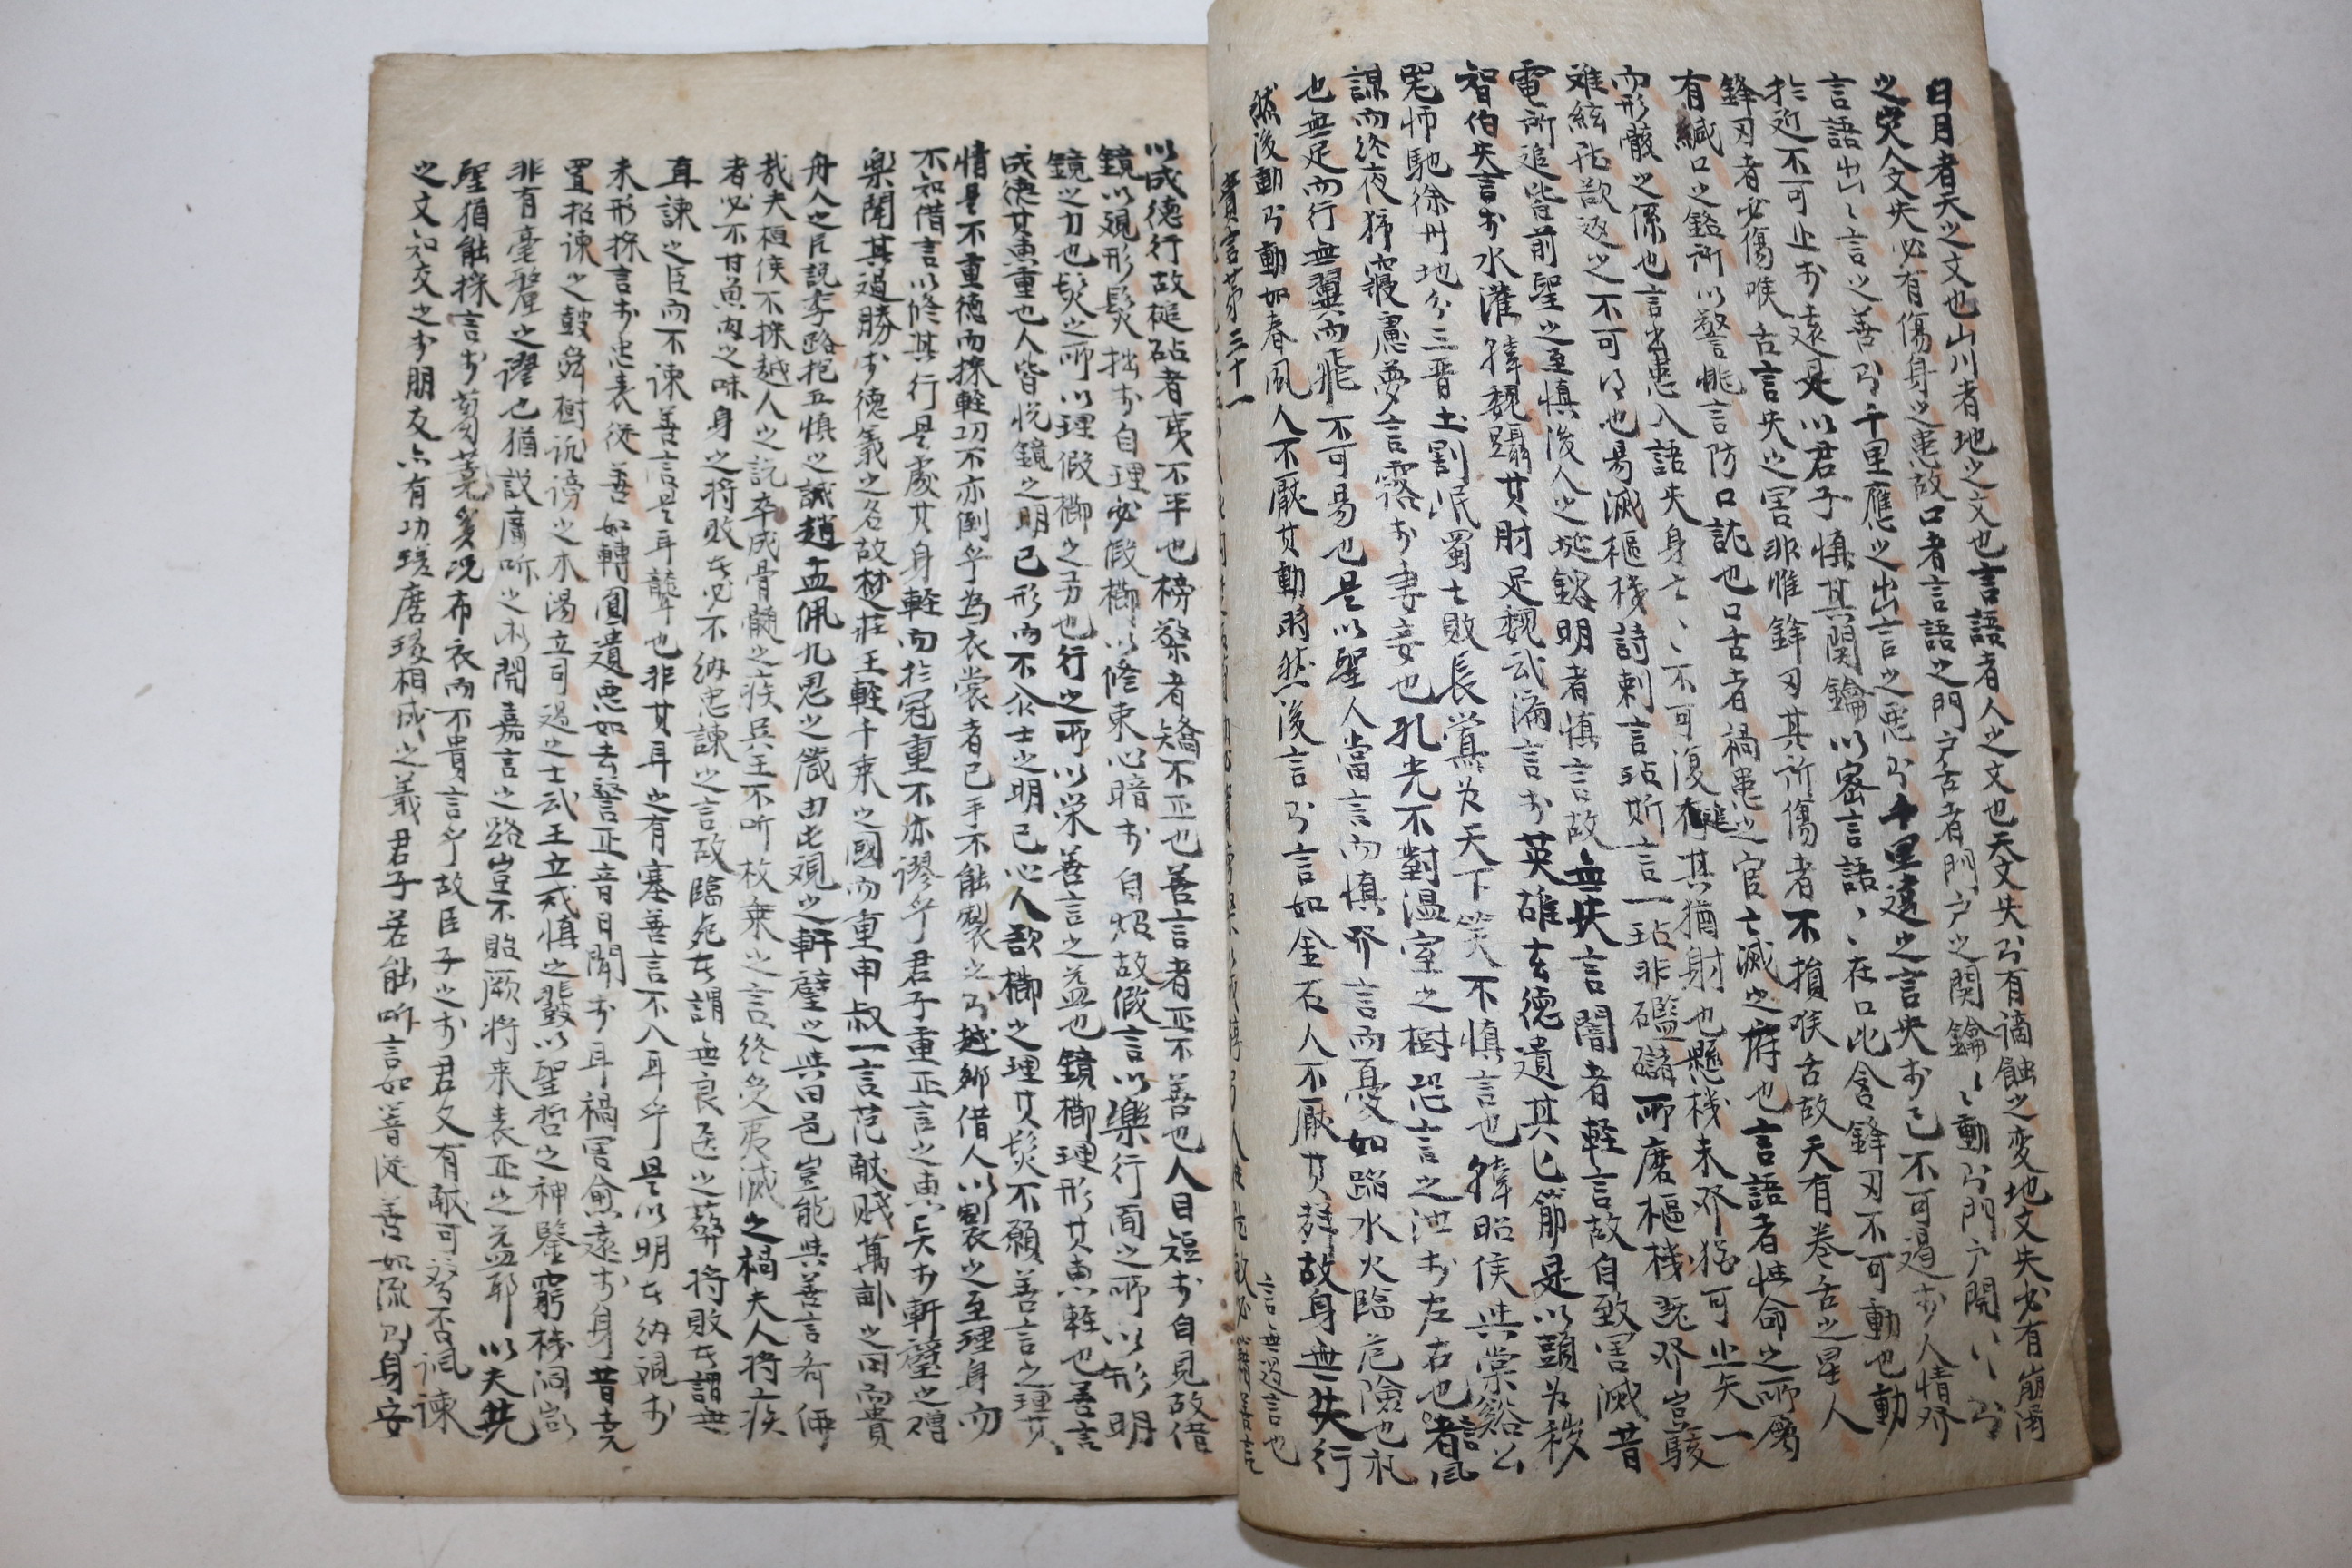 日月者天之文也山川者地之文也言語者人之文也天文失則有謫蝕之変地文失必有崩渴
之灾人文失必有傷身之患故口者言語之門户舌者門户之関鑰〻動則門户開〻則
言語出〻言之善則千里應之出言之悪則千里違之言失於己不可遏於人情発
於近不可止於遠是以君子慎其関鑰以密言語〻在口比含鋒刃不可動也動
鋒刃者必傷喉舌言失之害非惟鋒刃其所傷者不損喉舌故天有卷舌之星人
有緘口之銘所以警恌言防口訛也口舌者禍患之官亡滅之府也言語者性命之所属
而形骸之係也言出患入語失身亡〻不可復存追其猶射也懸機未発猶可止矢一
难絃雖欲返之不可得也易滅樞機詩刺言玷斯言一玷非礛䃴所磨樞機既発豈駭
電所追皆前聖之至慎後人之埏鎔明者慎言故無失言闇者軽言故自致害滅昔
智伯失言於水灌韓魏躡其肘足魏武漏言於英雄玄德遺其匕節是以頭为穢
噐師馳徐州地分三晋土割岷蜀亡敗長為天下笑不慎言也韓昭侯與棠谿公
謀而終夜獨寢慮夢言露於妻妾也孔光不對温室之樹恐言之泄於左右也言者風
也無足而行無翼而飛不可易也是以聖人當言而慎発言而憂如蹈水火臨危險也礼
然後動則動如春風人不厭其動時然後言則言如金石人不厭其辞故身無失行
言無過言也
貴言第三十一
以成德行故槌砧者夷不平也榜檠者矯不正也善言者正不善也人目短於自見故借
鏡以覌形髮拙於自理必假櫛以修束心暗於自炤故假言以樂行面之所以形明
鏡之力也髮之所以理假櫛之力也行之所以栄善言之益也鏡櫛理形其恵軽也善言
成德其恵重也人皆悦鏡之明己形而不欣士之明己心人欲櫛之理其髮不願善言之理其
情是不重德而採軽功不亦倒乎為衣裳者己手不能製之則越鄉借人以割衣之至理身而
不知借言以修其行是處其身軽而於冠重不亦謬乎君子重正言之恵矣於軒璧之贈
楽聞其過勝於德義之名故楚荘王軽千乗之國而重申叔一言范献賤萬畝之田而貴
舟人之片説季路抱五慎之誡趙孟佩九思之箴由此覌之軒璧之與田邑豈能與善言斉伍
哉夫桓侯不採越人之説卒成骨髓之疾兵王不听枚乗之言終受夷滅之禍夫人将疾
者必不甘魚肉之味身之将敗者必不納忠諫之言故臨死者謂無良医之藥将敗者謂無
直諫之臣而不諫善言是耳聾也非其耳之有塞善言不入耳乎是以明者納覌於
未形採言於忠表従善如轉圓遺悪如去讐正音日聞於耳禍害愈遠於身昔堯
置招諫之鼓舜樹訴謗之木湯立司過之士武王立戒慎之鼗以聖哲之神鑒窮機洞幽
非有毫釐之謬也猶設廣听之術開嘉言之路豈不貽厥将来表正之益耶以夫共
聖猶能採言於芻蕘矣况布衣而不貴言乎故臣子之於君父有献可替否諷諫
之文知交之於朋友亦有切瑳磨琢相成之義君子若能听言如響従善如流則身安